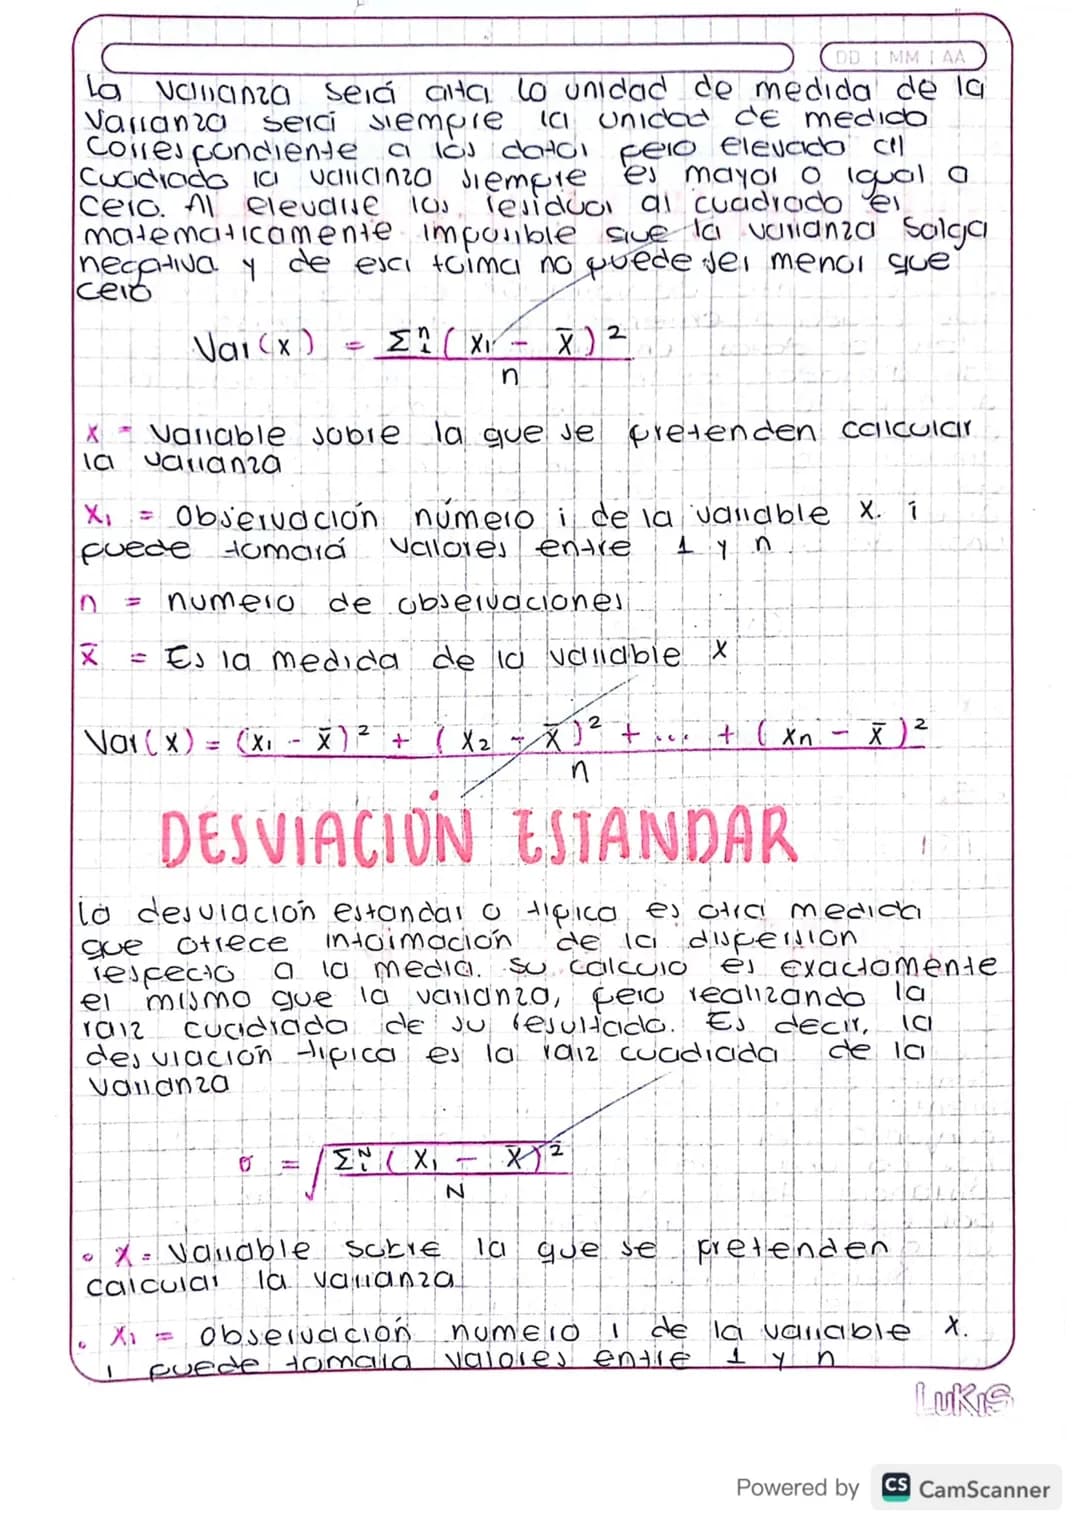 DD | MM | AA
La varianza será alta lo unidad de medida de la
varianza será siempre la unidad de medida
correspondiente a los datos pero elevado al
cuadrado la varianza siempre es mayor o igual a
cero. Al elevarse los residuos al cuadrado es
matematicamente imposible que la varianza salga
negativa y de esa forma no puede ser menor que
cero
Var(x) = Σⁿ₁ (x₁ - x̄)²
n
x = variable sobre la que se pretenden calcular
la varianza
x₁ = Observación número i de la variable x. i
puede tomará valores entre 1 y n.
n = numero de observaciones
x̄ = Es la medida de la variable x
Var(x) = (x₁ - x̄)² + (x₂ - x̄)² + ... + (xn - x̄)²
n
DESVIACIÓN ESTANDAR
la desviación estandar o tipica es otra medida
que ofrece información de la dispersion
respecto a la media. su calculo es exactamente
el mismo que la varianza, pero realizando la
raiz cuadrada de su resultado. Es decir, la
desviación tipica es la raiz cuadrada de la
varianza
σ = √Σᴺᵢ (x₁ - x̄)²
N
• X = Variable sobre la que se pretenden
calcular la varianza
• X₁ = Observación numero i de la variable x.
i puede tomara valores entre 1 y n
LUKIS
Powered by CS CamScanner